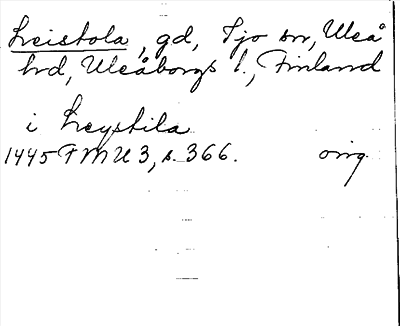 Leistola, gd, Ijo sn, Uleå
hd, Uleåborgs l., Finland
i Leystila
1445 FMU 3, s. 366. orig.